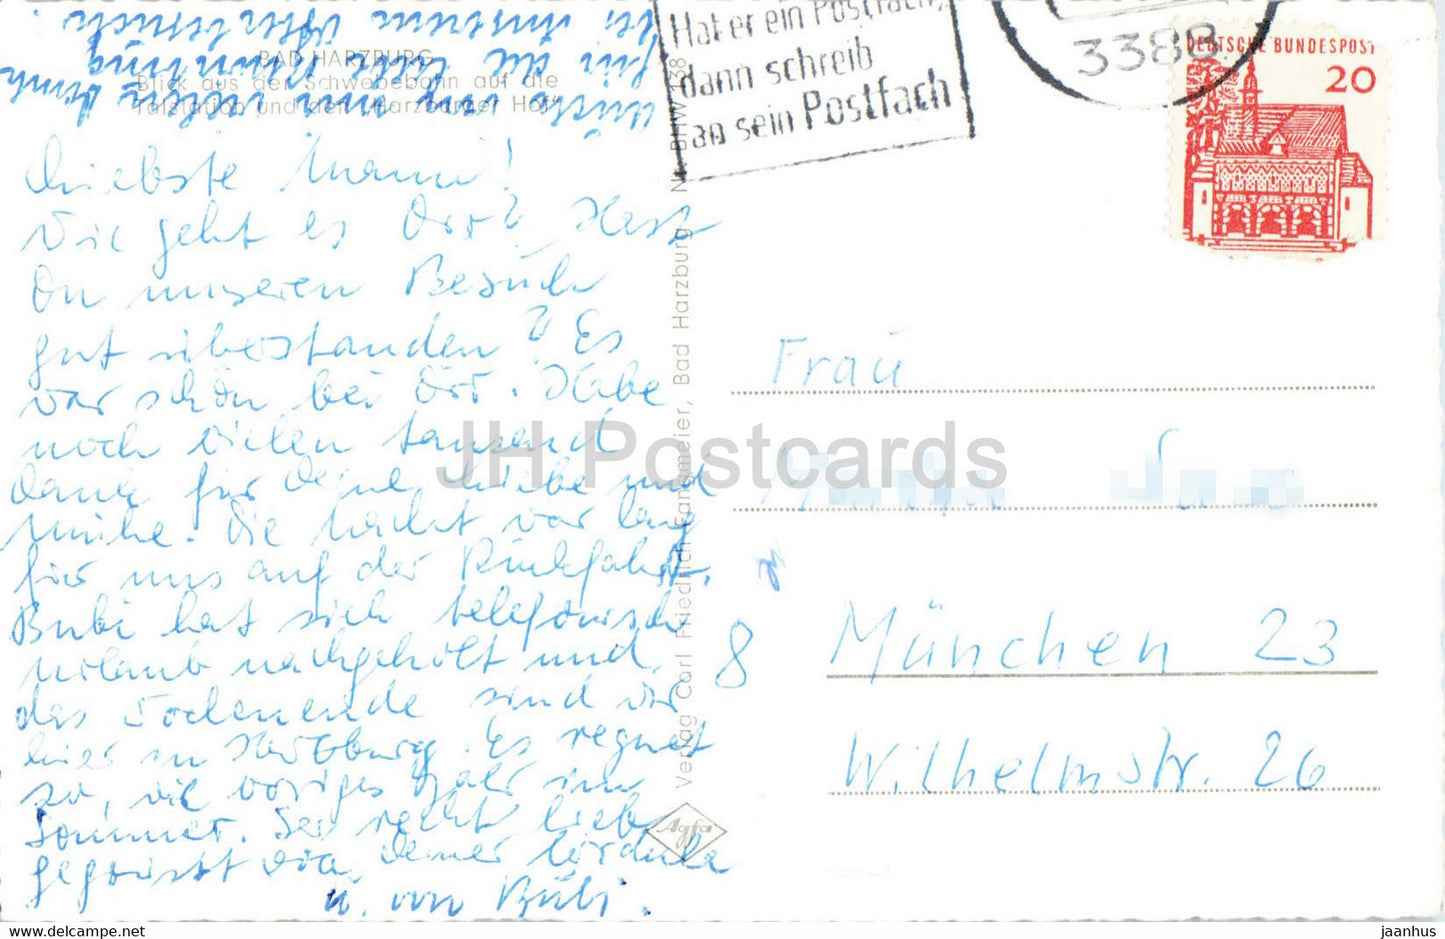 BAD HARZBURG
Blick aus der Schwebebahn auf die
Talstation und den "Harzburger Hof"
Hat er ein Postfach,
dann schreib
an sein Postfach
3388
DEUTSCHE BUNDESPOST
20
Liebste Mami!
Wie geht es Dir? Hast
Du unseren Besuch
gut überstanden? Es
war schön bei Dir. Habe
noch vielen tausend
Dank für Deine Liebe und
Mühe. Die Nacht war lang
für uns auf der Rückfahrt.
Bubi hat sich telefonisch
Urlaub nachgeholt und
das Wochenende sind wir
hier in Harzburg. Es regnet
so, wie voriges Jahr im
Sommer. Sei recht lieb
gegrüsst von Deiner Cordula
u. von Bubi.
Verlag Carl Friedrich Fangmeier, Bad Harzburg
Agfa
Frau
8 München 23
Wilhelmstr. 26
JH Postcards
www.hippostcard.com
jaanhus